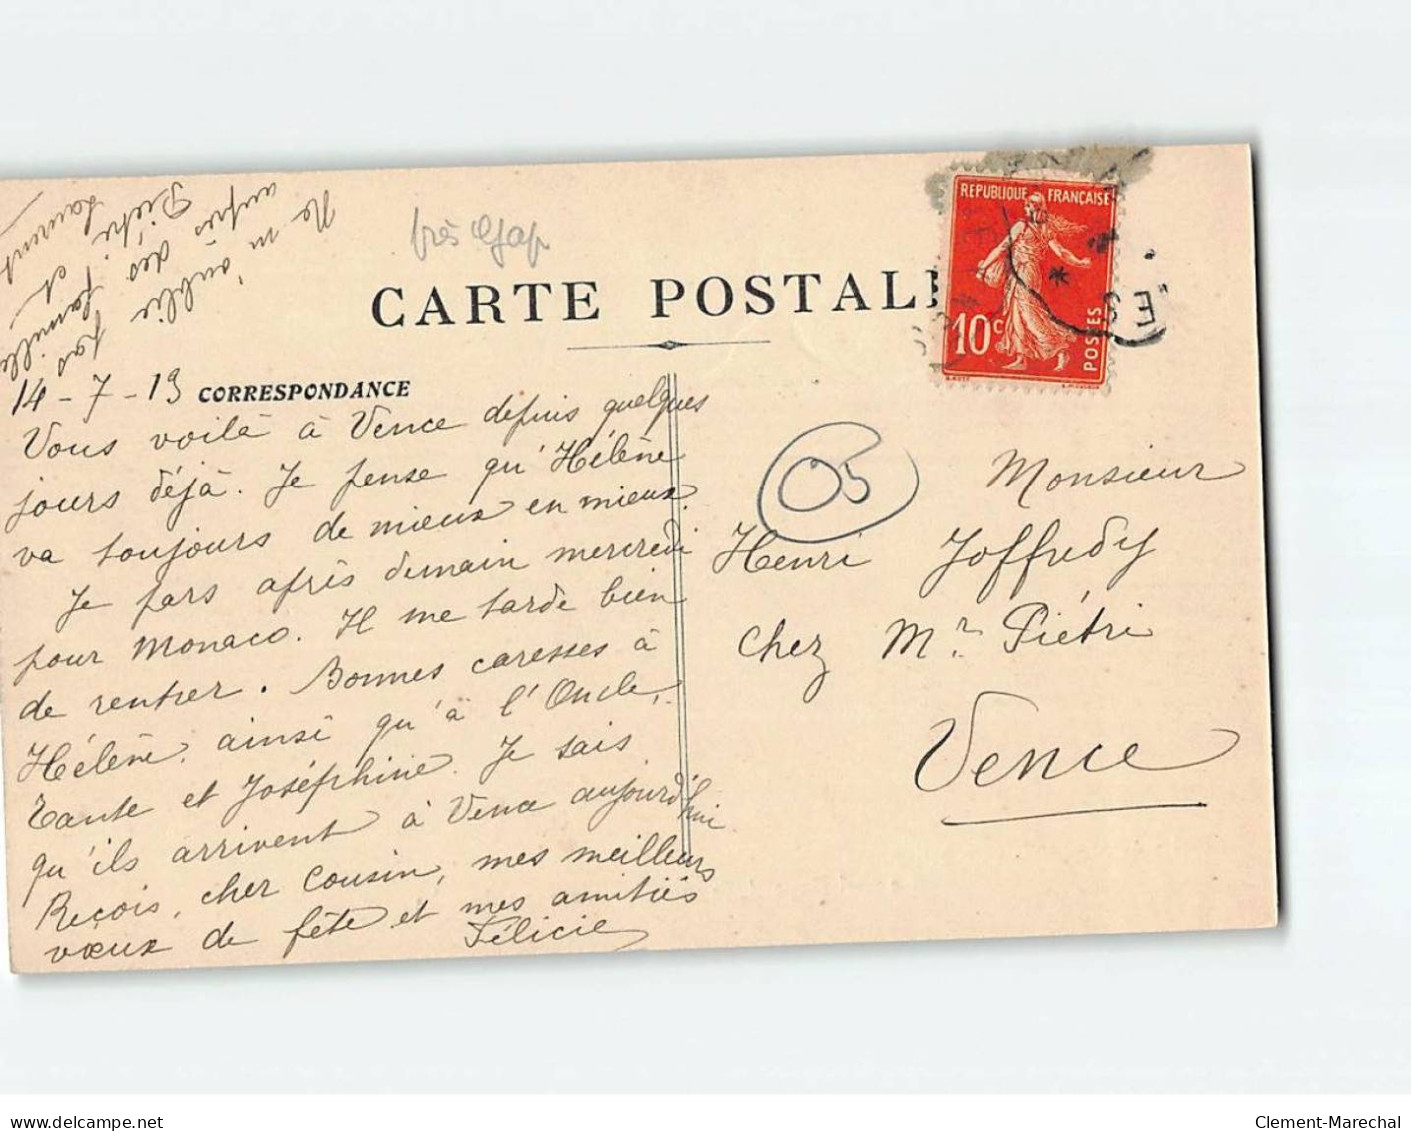 Ne m'oublie pas
auprès des famille
Piétri et
Laurent
près Gap
CARTE POSTAL
RÉPUBLIQUE FRANÇAISE
10c
POSTES
14-7-13 CORRESPONDANCE
Vous voilà à Vence depuis quelques
jours déjà. Je pense qu'Hélène
va toujours de mieux en mieux.
Je pars après demain mercredi
pour Monaco. Il me tarde bien
de rentrer. Bonnes caresses à
Hélène, ainsi qu'à l'Oncle,
Tante et Joséphine. Je sais
qu'ils arrivent à Vence aujourd'hui
Reçois, cher Cousin, mes meilleurs
vœux de fête et mes amitiés
Félicie
05
Monsieur
Henri Joffredy
chez Mr Piétri
Vence
www.delcampe.net
Clement-Marechal